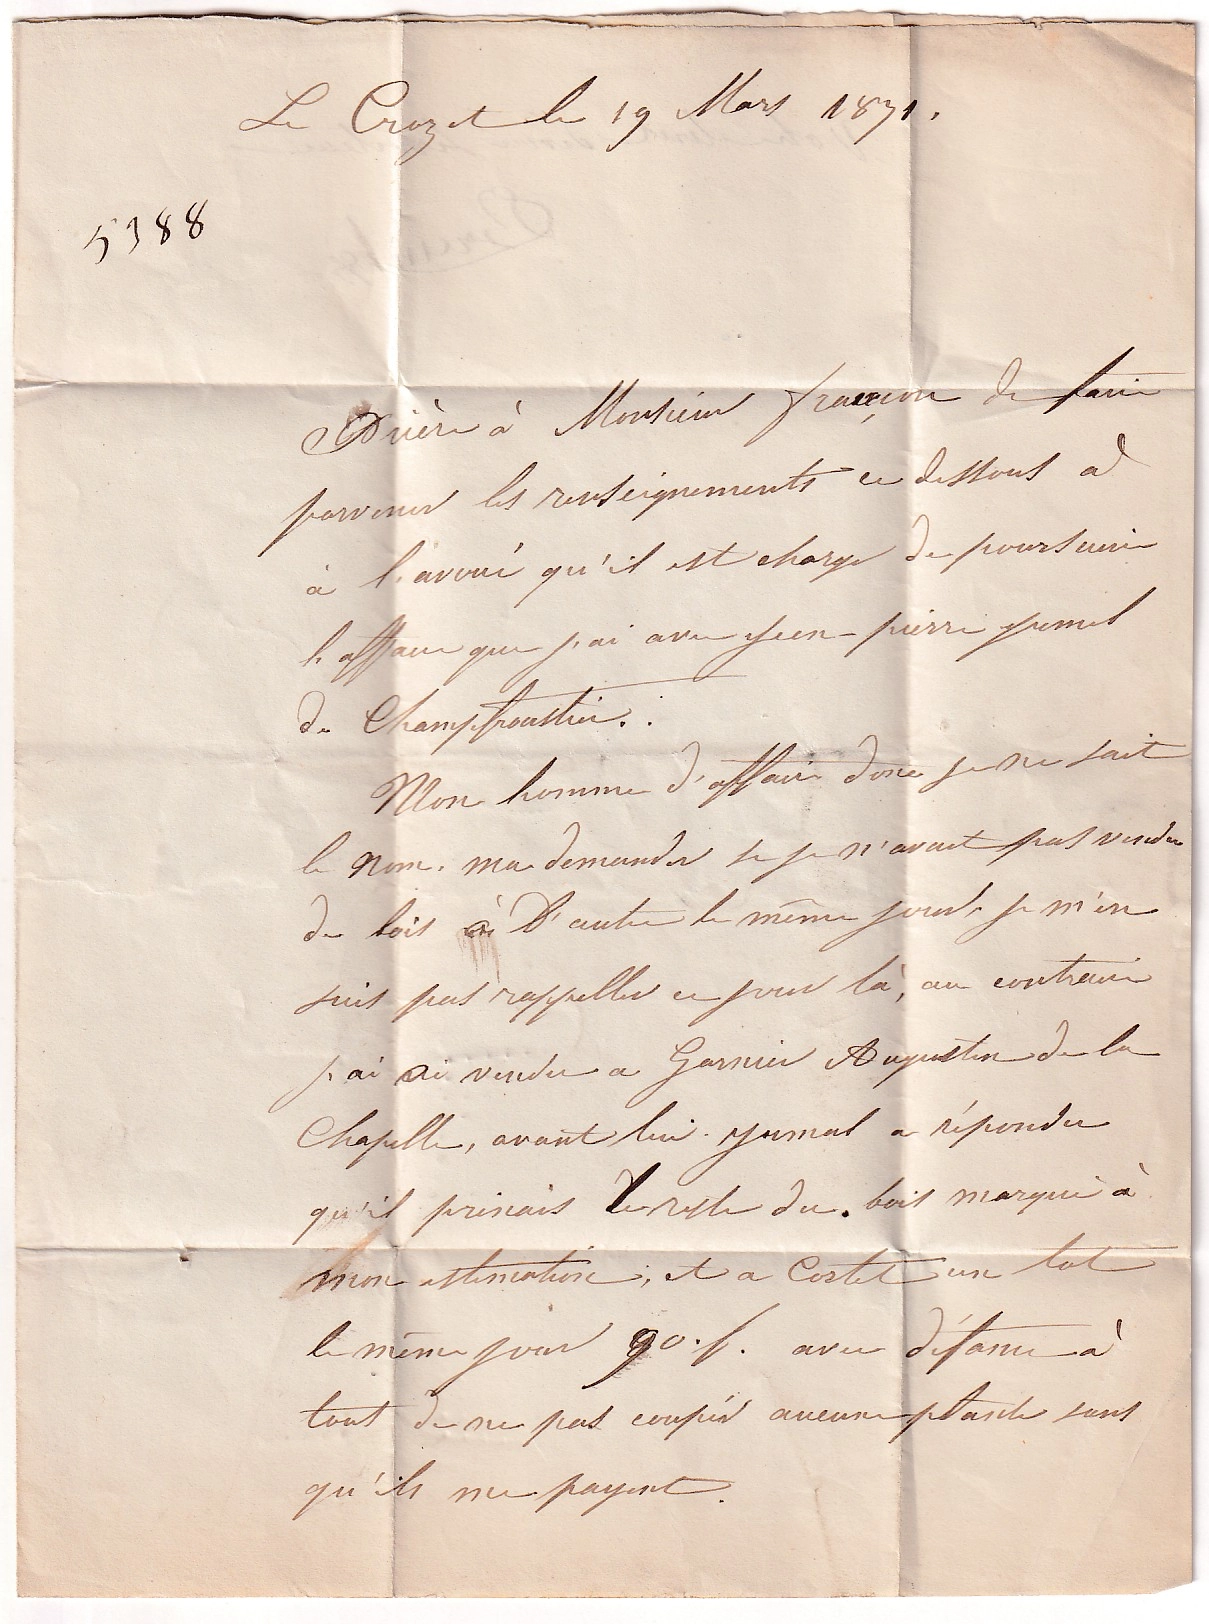 Le Crozet le 19 Mars 1871.
5388
Prière à Monsieur françon de faire
parvenir les renseignements ce dessous a
à l'avoué qu'il est charge de poursuivre
l'affaire que j'ai avec jean-pierre
de
Mon homme d'affaire donc je ne sait
le nom. ma demander se je n'avait pas vendu
de bois à D'autre le même jour, je m'en
suis pas rappeller ce jour là, au contraire
j'ai ai vendu a Garnier Augustin de la
Chapelle, avant lui. a répondu
qu'il prenais le reste du. bois marqué à
mon estimation, et a Costet un lot
le même jour 90. f. avec défance à
tout de ne pas coupér aucune plante sans
qu'ils me payent.